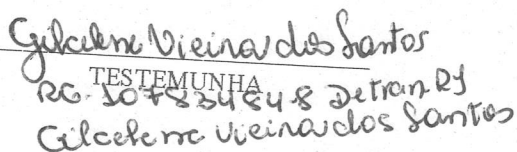 Gilcelene Vieira dos Santos
TESTEMUNHA
RG. 107834848 Detran RJ
Gilcelene Vieira dos Santos